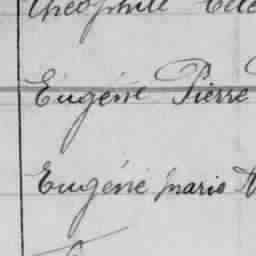 Théophile
Eugéne Pierre
Eugéne marie